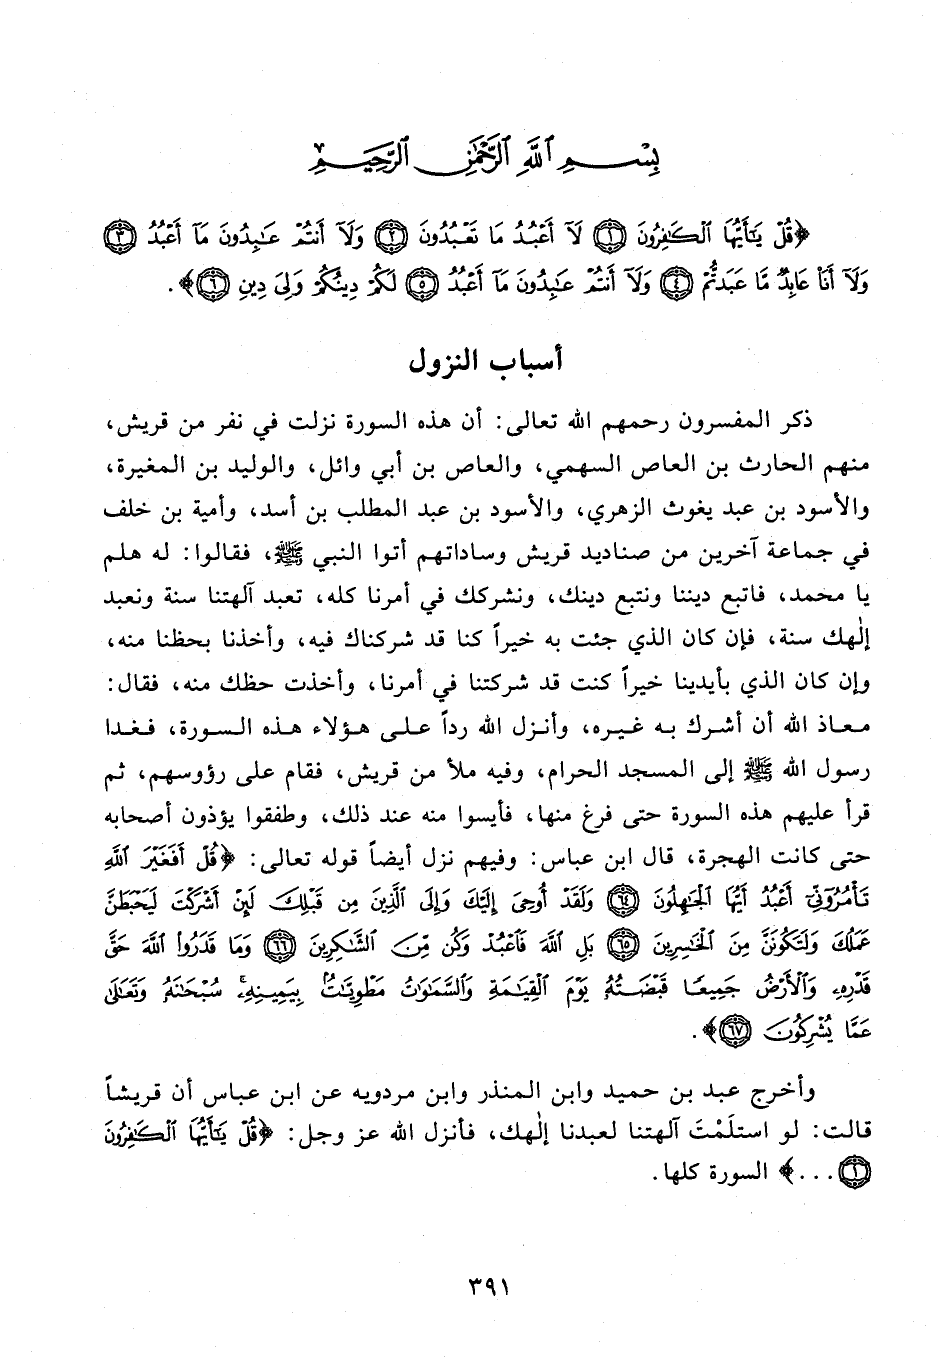 بِسْمِ ٱللَّهِ ٱلرَّحْمَٰنِ ٱلرَّحِيمِ
﴿قُلْ يَٰٓأَيُّهَا ٱلْكَٰفِرُونَ ١ لَآ أَعْبُدُ مَا تَعْبُدُونَ ٢ وَلَآ أَنتُمْ عَٰبِدُونَ مَآ أَعْبُدُ ٣
وَلَآ أَنَا۠ عَابِدٌ مَّا عَبَدتُّمْ ٤ وَلَآ أَنتُمْ عَٰبِدُونَ مَآ أَعْبُدُ ٥ لَكُمْ دِينُكُمْ وَلِيَ دِينِ ٦﴾.
أسباب النزول
ذكر المفسرون رحمهم الله تعالى: أن هذه السورة نزلت في نفر من قريش،
منهم الحارث بن العاص السهمي، والعاص بن أبي وائل، والوليد بن المغيرة،
والأسود بن عبد يغوث الزهري، والأسود بن عبد المطلب بن أسد، وأمية بن خلف
في جماعة آخرين من صناديد قريش وساداتهم أتوا النبي ﷺ، فقالوا: له هلم
يا محمد، فاتبع ديننا ونتبع دينك، ونشركك في أمرنا كله، تعبد آلهتنا سنة ونعبد
إلٰهك سنة، فإن كان الذي جئت به خيراً كنا قد شركناك فيه، وأخذنا بحظنا منه،
وإن كان الذي بأيدينا خيراً كنت قد شركتنا في أمرنا، وأخذت حظك منه، فقال:
معاذ الله أن أشرك به غيره، وأنزل الله رداً على هؤلاء هذه السورة، فغدا
رسول الله ﷺ إلى المسجد الحرام، وفيه ملأ من قريش، فقام على رؤوسهم، ثم
قرأ عليهم هذه السورة حتى فرغ منها، فأيسوا منه عند ذلك، وطفقوا يؤذون أصحابه
حتى كانت الهجرة، قال ابن عباس: وفيهم نزل أيضاً قوله تعالى: ﴿قُلْ أَفَغَيْرَ ٱللَّهِ
تَأْمُرُوٓنِّيٓ أَعْبُدُ أَيُّهَا ٱلْجَٰهِلُونَ ٦٤ وَلَقَدْ أُوحِيَ إِلَيْكَ وَإِلَى ٱلَّذِينَ مِن قَبْلِكَ لَئِنْ أَشْرَكْتَ لَيَحْبَطَنَّ
عَمَلُكَ وَلَتَكُونَنَّ مِنَ ٱلْخَٰسِرِينَ ٦٥ بَلِ ٱللَّهَ فَٱعْبُدْ وَكُن مِّنَ ٱلشَّٰكِرِينَ ٦٦ وَمَا قَدَرُوا۟ ٱللَّهَ حَقَّ
قَدْرِهِۦ وَٱلْأَرْضُ جَمِيعًا قَبْضَتُهُۥ يَوْمَ ٱلْقِيَٰمَةِ وَٱلسَّمَٰوَٰتُ مَطْوِيَّٰتٌۢ بِيَمِينِهِۦۚ سُبْحَٰنَهُۥ وَتَعَٰلَىٰ
عَمَّا يُشْرِكُونَ ٦٧﴾.
وأخرج عبد بن حميد وابن المنذر وابن مردويه عن ابن عباس أن قريشاً
قالت: لو استلَمْتَ آلهتنا لعبدنا إلٰهك، فأنزل الله عز وجل: ﴿قُلْ يَٰٓأَيُّهَا ٱلْكَٰفِرُونَ
١...﴾ السورة كلها.
٣٩١